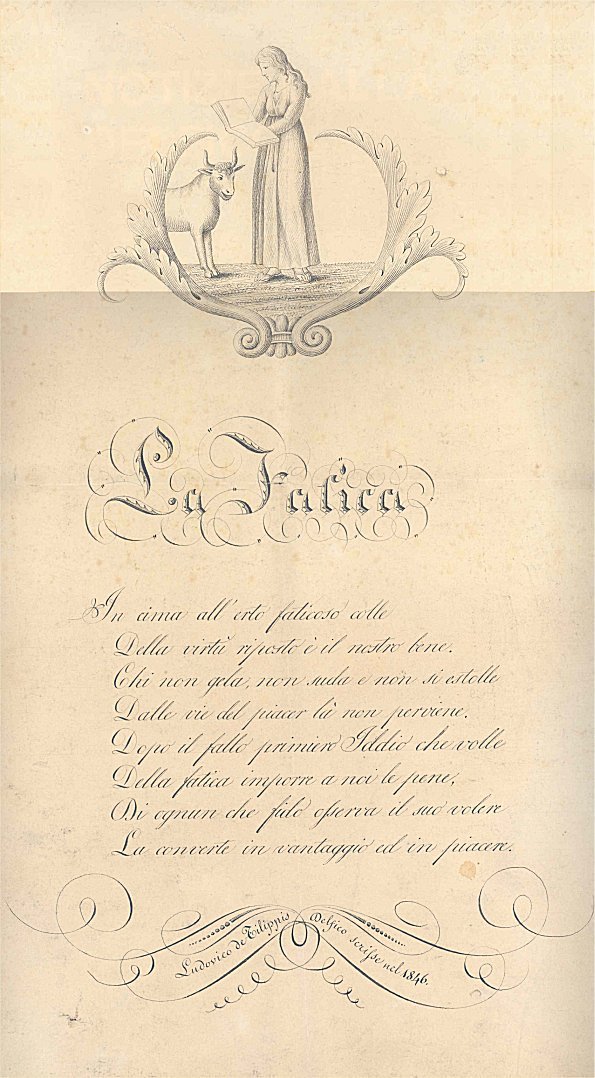 La Fatica
In cima all'erto faticoso colle
Della virtù riposto è il nostro bene.
Chi non gela, non suda e non si estolle
Dalle vie del piacer là non perviene.
Dopo il fallo primiero Iddio che volle
Della fatica imporre a noi le pene,
Di ognun che fido osserva il suo volere
La converte in vantaggio ed in piacere.
Ludovico de Filippis Delfico scrisse nel 1846.